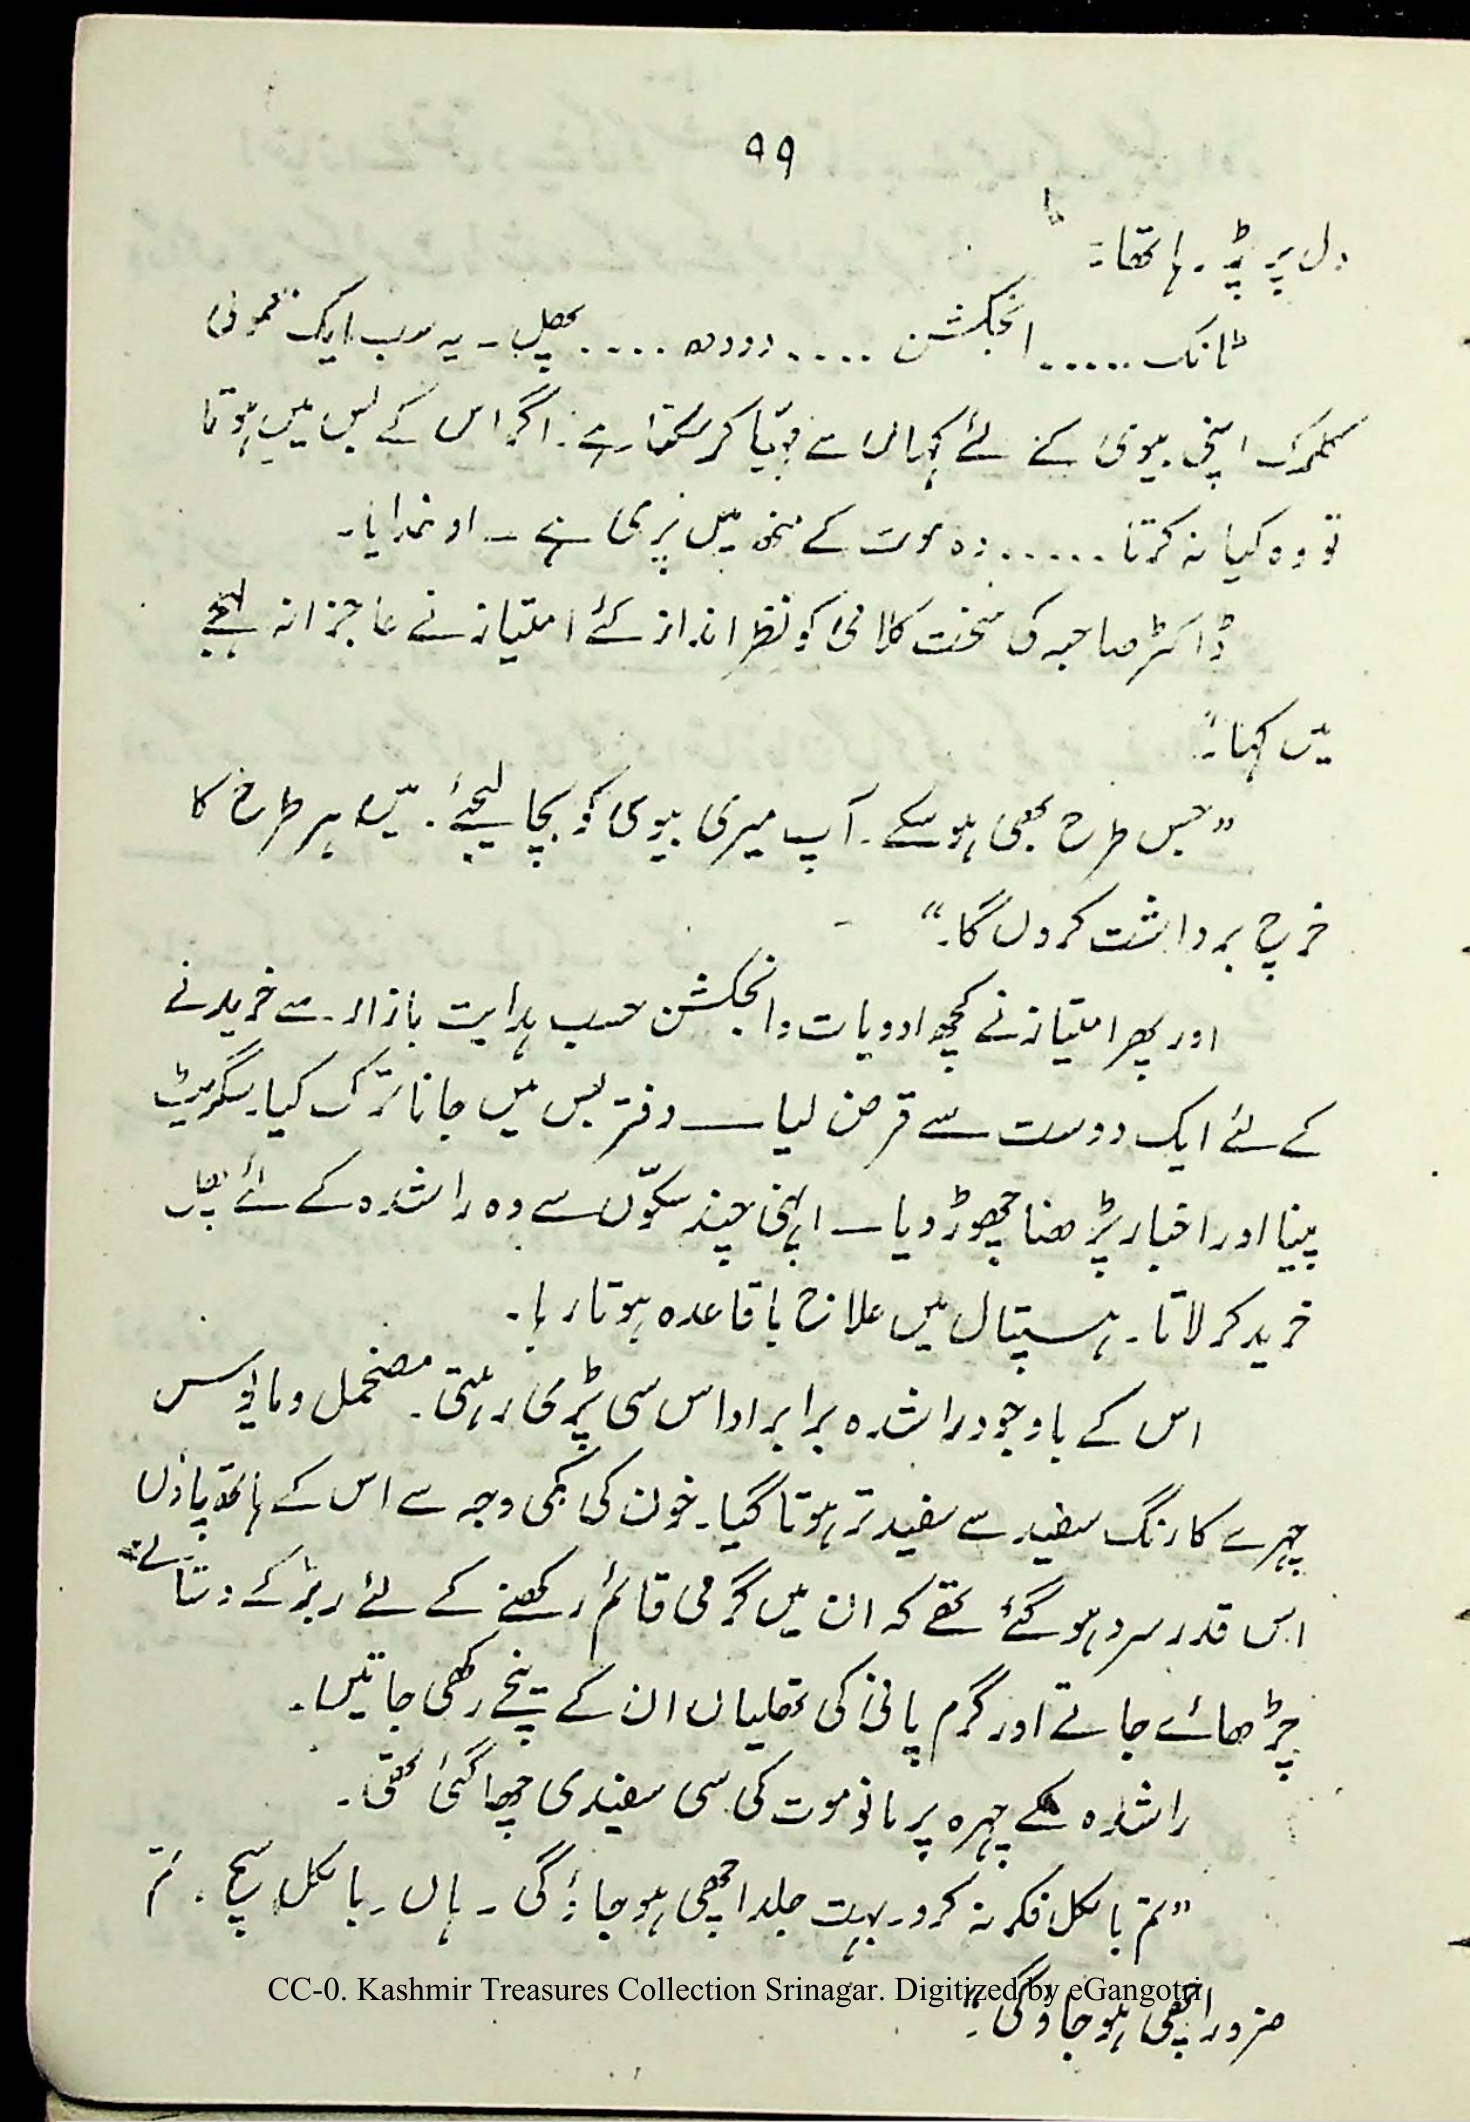 ۹۹
دل پر پڑ رہا تھا۔
ٹانک ..... انجکشن .... دودھ .... پھل ۔ یہ سب ایک معمولی
کلرک اپنی بیوی کے لئے کہاں سے مہیّا کر سکتا ہے۔ اگر اس کے بس میں ہوتا
تو وہ کیا نہ کرتا ..... وہ موت کے منھ میں پڑی ہے ۔ او خدایا۔
ڈاکٹر صاحبہ کی سخت کلامی کو نظر انداز کئے امتیاز نے عاجزانہ لہجے
میں کہا۔
”جس طرح بھی ہو سکے۔ آپ میری بیوی کو بچا لیجئے۔ میں ہر طرح کا
خرچ برداشت کروں گا۔“
اور پھر امتیاز نے کچھ ادویات و انجکشن حسب ہدایت بازار سے خریدنے
کے لئے ایک دوست سے قرض لیا — دفتر بس میں جانا ترک کیا۔ سگریٹ
پینا اور اخبار پڑھنا چھوڑ دیا — انہی چند سکّوں سے وہ راشدہ کے لئے پھل
خرید کر لاتا۔ ہسپتال میں علاج باقاعدہ ہوتا رہا۔
اس کے باوجود راشدہ برابر اداس سی پڑی رہتی۔ مضمحل و مایوس
چہرے کا رنگ سفید سے سفید تر ہوتا گیا۔ خون کی کمی وجہ سے اس کے ہاتھ پاؤں
اس قدر سرد ہو گئے تھے کہ ان میں گرمی قائم رکھنے کے لئے ربڑ کے دستانے
چڑھائے جاتے اور گرم پانی کی تھلیاں ان کے نیچے رکھی جاتیں۔
راشدہ کے چہرہ پر مانو موت کی سی سفیدی چھا گئی تھی۔
”تم بالکل فکر نہ کرو۔ بہت جلد اچھی ہو جاؤ گی ۔ ہاں ۔ بالکل سچ ۔ تم
ضرور اچھی ہو جاؤ گی۔“
CC-0. Kashmir Treasures Collection Srinagar. Digitized by eGangotri